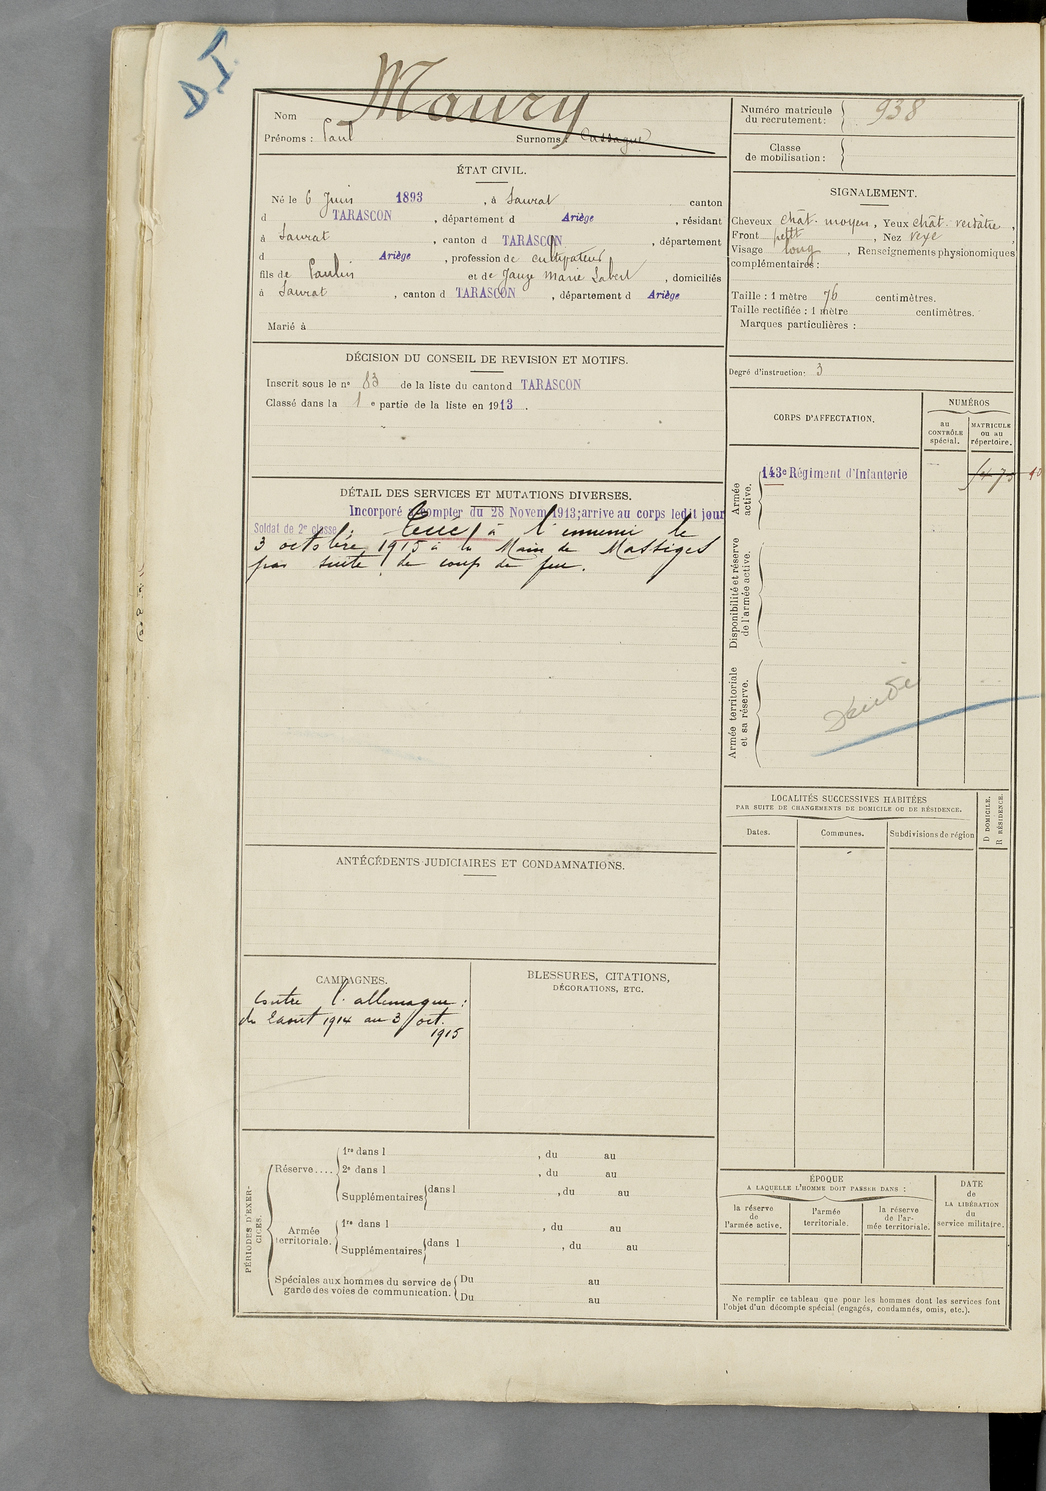 D.I.
Nom Maury
Prénoms : Paul Surnoms : Cassagne
Numéro matricule du recrutement : 938
Classe de mobilisation :
ÉTAT CIVIL.
Né le 6 Juin 1893, à Saurat canton
d TARASCON, département d Ariège, résidant
à Saurat, canton d TARASCON, département
d Ariège, profession de cultivateur
fils de Paulin et de Jauze Marie Sabert, domiciliés
à Saurat, canton d TARASCON, département d Ariège
Marié à
SIGNALEMENT.
Cheveux chât. moyen, Yeux chât. verdâtre,
Front petit, Nez vexe,
Visage long, Renseignements physionomiques
complémentaires :
Taille : 1 mètre 76 centimètres.
Taille rectifiée : 1 mètre centimètres.
Marques particulières :
Degré d'instruction : 3
DÉCISION DU CONSEIL DE REVISION ET MOTIFS.
Inscrit sous le nº 83 de la liste du canton d TARASCON
Classé dans la 1 e partie de la liste en 1913.
CORPS D'AFFECTATION.
NUMÉROS
au CONTRÔLE spécial.
MATRICULE ou au répertoire.
Armée active.
143e Régiment d'Infanterie
Disponibilité et réserve de l'armée active.
Armée territoriale et sa réserve.
DÉTAIL DES SERVICES ET MUTATIONS DIVERSES.
Incorporé à compter du 28 Novem 1913; arrive au corps ledit jour
Soldat de 2e classe. Tué à l'ennemi le
3 octobre 1915 à la Main de Massiges
par suite de coup de feu.
LOCALITÉS SUCCESSIVES HABITÉES
PAR SUITE DE CHANGEMENTS DE DOMICILE OU DE RÉSIDENCE.
Dates. Communes. Subdivisions de région
D DOMICILE.
R RÉSIDENCE.
ANTÉCÉDENTS JUDICIAIRES ET CONDAMNATIONS.
CAMPAGNES.
Contre l'allemagne :
du 2 aout 1914 au 3 oct.
1915
BLESSURES, CITATIONS,
DÉCORATIONS, ETC.
PÉRIODES D'EXERCICES.
Réserve....
1re dans l , du au
2e dans l , du au
Supplémentaires dans l , du au
Armée territoriale.
1re dans l , du au
Supplémentaires dans l , du au
Spéciales aux hommes du service de garde des voies de communication.
Du au
Du au
ÉPOQUE
A LAQUELLE L'HOMME DOIT PASSER DANS :
la réserve de l'armée active.
l'armée territoriale.
la réserve de l'armée territoriale.
DATE de LA LIBÉRATION du service militaire.
Ne remplir ce tableau que pour les hommes dont les services font
l'objet d'un décompte spécial (engagés, condamnés, omis, etc.).